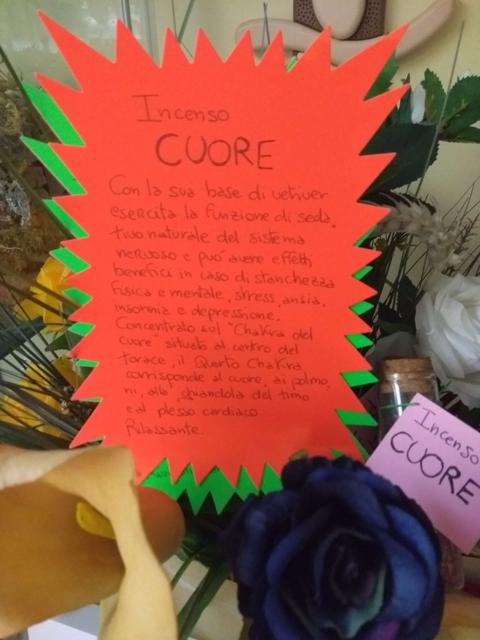 Incenso
CUORE
Con la sua base di vetiver
esercita la funzione di seda_
tivo naturale del sistema
nervoso e può avere effetti
benefici in caso di stanchezza
fisica e mentale, stress, ansia,
insonnia e depressione.
Concentrato sul "Chakra del
cuore" situato al centro del
torace, il Quarto Chakra
corrisponde al cuore, ai polmo_
ni, alla ghiandola del timo
e al plesso cardiaco.
Rilassante.
Incenso
CUORE